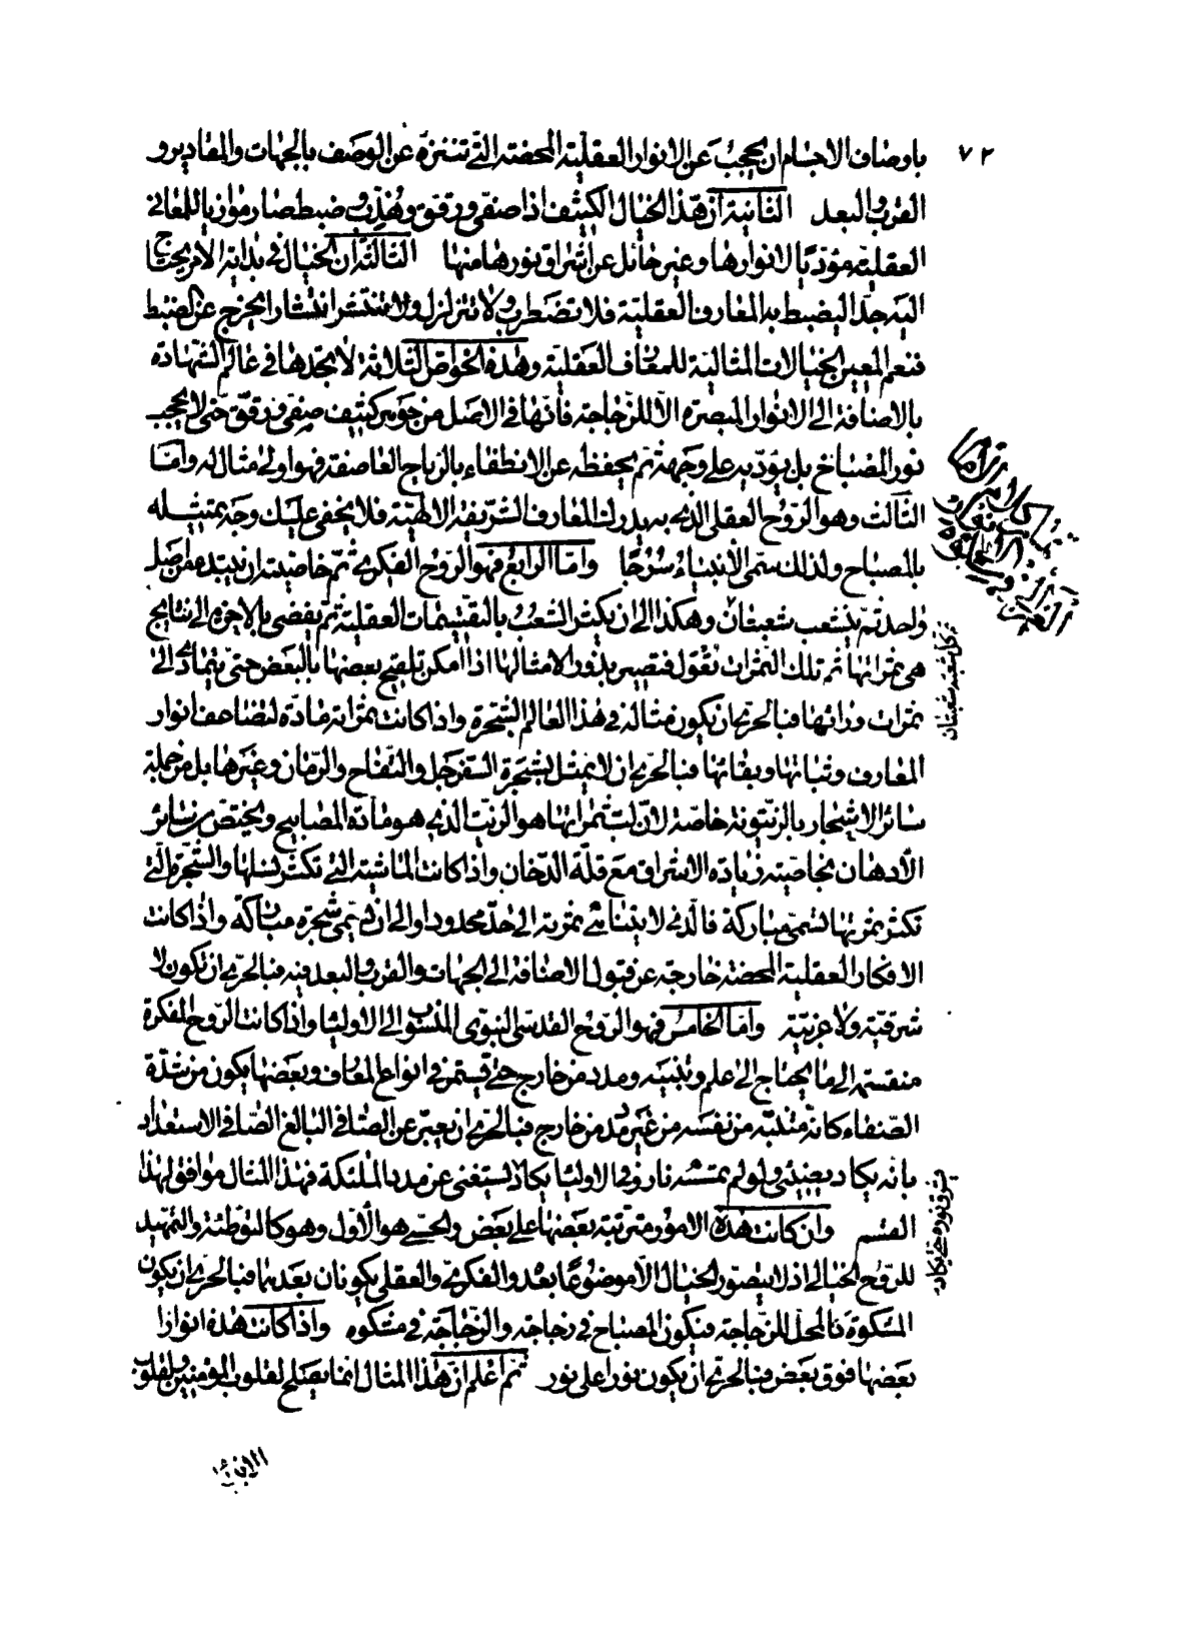 ٧٢
باوصاف الاجسام ان يحجب عن الانوار العقلية المحضة التى تتنزه عن الوصف بالجهات والمقادير و
القرب والبعد الثانية ان هذا الخيال الكثيف اذا صفى ورقق وهذب وضبط صار موازيا للمعانى
العقلية مؤديا لانوارها وغير حائل عن اشراق نورها منها الثالثة ان الخيال فى بداية الامر يحتاج
اليه جدا ليضبط به المعارف العقلية فلا تضطرب ولا تتزلزل ولا تنتشر انتشارا يخرج عن الضبط
فنعم المعين الخيالات المثالية للمعارف العقلية وهذه الخواص الثلاثة لا نجدها فى عالم الشهادة
بالاضافة الى الانوار المبصرة الا للزجاجة فانها فى الاصل من جوهر كثيف صفى ورقق حتى لا يحجب
نور المصباح بل يؤديه على وجهه ثم يحفظه عن الانطفاء بالرياح العاصفة فهو اولى مثال له واما
الثالث وهو الروح العقلى الذى به يدرك المعارف الشريفة الالهية فلا يخفى عليك وجه تمثيله
بالمصباح ولذلك سمى الانبياء سرجا واما الرابع فهو الروح الفكرى ثم خاصيته ان يبتدء من اصل
واحد ثم يتشعب شعبتان وهكذا الى ان يكثر الشعب بالتقسيمات العقلية ثم يفضى بالاخرة الى نتايج
هى ثمراتها ثم تلك الثمرات تقول فتصير بذورا لامثالها اذا امكن تلقيح بعضها بالبعض حتى يتمادى الى
ثمرات ورائها فبالحرى ان يكون مثاله فى هذا العالم الشجرة واذا كانت ثمراته مادة لتضاعف انوار
المعارف وثباتها وبقائها فبالحرى ان لا يمثل بشجرة السفرجل والتفاح والرمان وغيرها بل من جملة
سائر الاشجار بالزيتونة خاصة لان لب ثمراتها هو الزيت الذى هو مادة المصابيح ويختص من سائر
الادهان بخاصية زيادة الاشراق مع قلة الدخان واذا كانت الماشية التى تكثر نسلها والشجرة التى
تكثر ثمرتها تسمى مباركة فالذى لا يتناهى ثمرته الى حد محدود اولى ان يسمى شجرة مباركة واذا كانت
الافكار العقلية المحضة خارجة عن قبول الاضافة الى الجهات والقرب والبعد فيه فبالحرى ان تكون لا
شرقية ولا غربية واما الخامس فهو الروح القدسى النبوى المنسوب الى الاوليا واذا كانت الروح المفكرة
منقسمة الى ما يحتاج الى علم وتنبيه ومدد من خارج حتى يستمر فى انواع المعارف وبعضها يكون من شدة
الصفاء كانه متنبه من نفسه من غير مدد من خارج فبالحرى ان يعبر عن الصافى البالغ الصافى الاستعداد
بانه يكاد يضيئ ولو لم تمسسه نار وفى الاوليا يكاد يستغنى عن مدد الملئكة فهذا المثال موافق لهذا
القسم وان كانت هذه الامور مترتبة بعضها على بعض والحسى هو الاول وهو كالتوطئة والتمهيد
للروح الخيالى اذ لا يتصور الخيال الا موضوعا بعد والفكرى والعقلى يكونان بعدهما فبالحرى ان يكون
المشكوة كالمحل للزجاجة فيكون المصباح فى زجاجة والزجاجة فى مشكوة واذا كانت هذه انوارا
بعضها فوق بعض فبالحرى ان يكون نورا على نور ثم اعلم ان هذا المثال انما يصلح لقلوب المؤمنين ولقلوب
الانبياء
من كل شعبة شعبتان